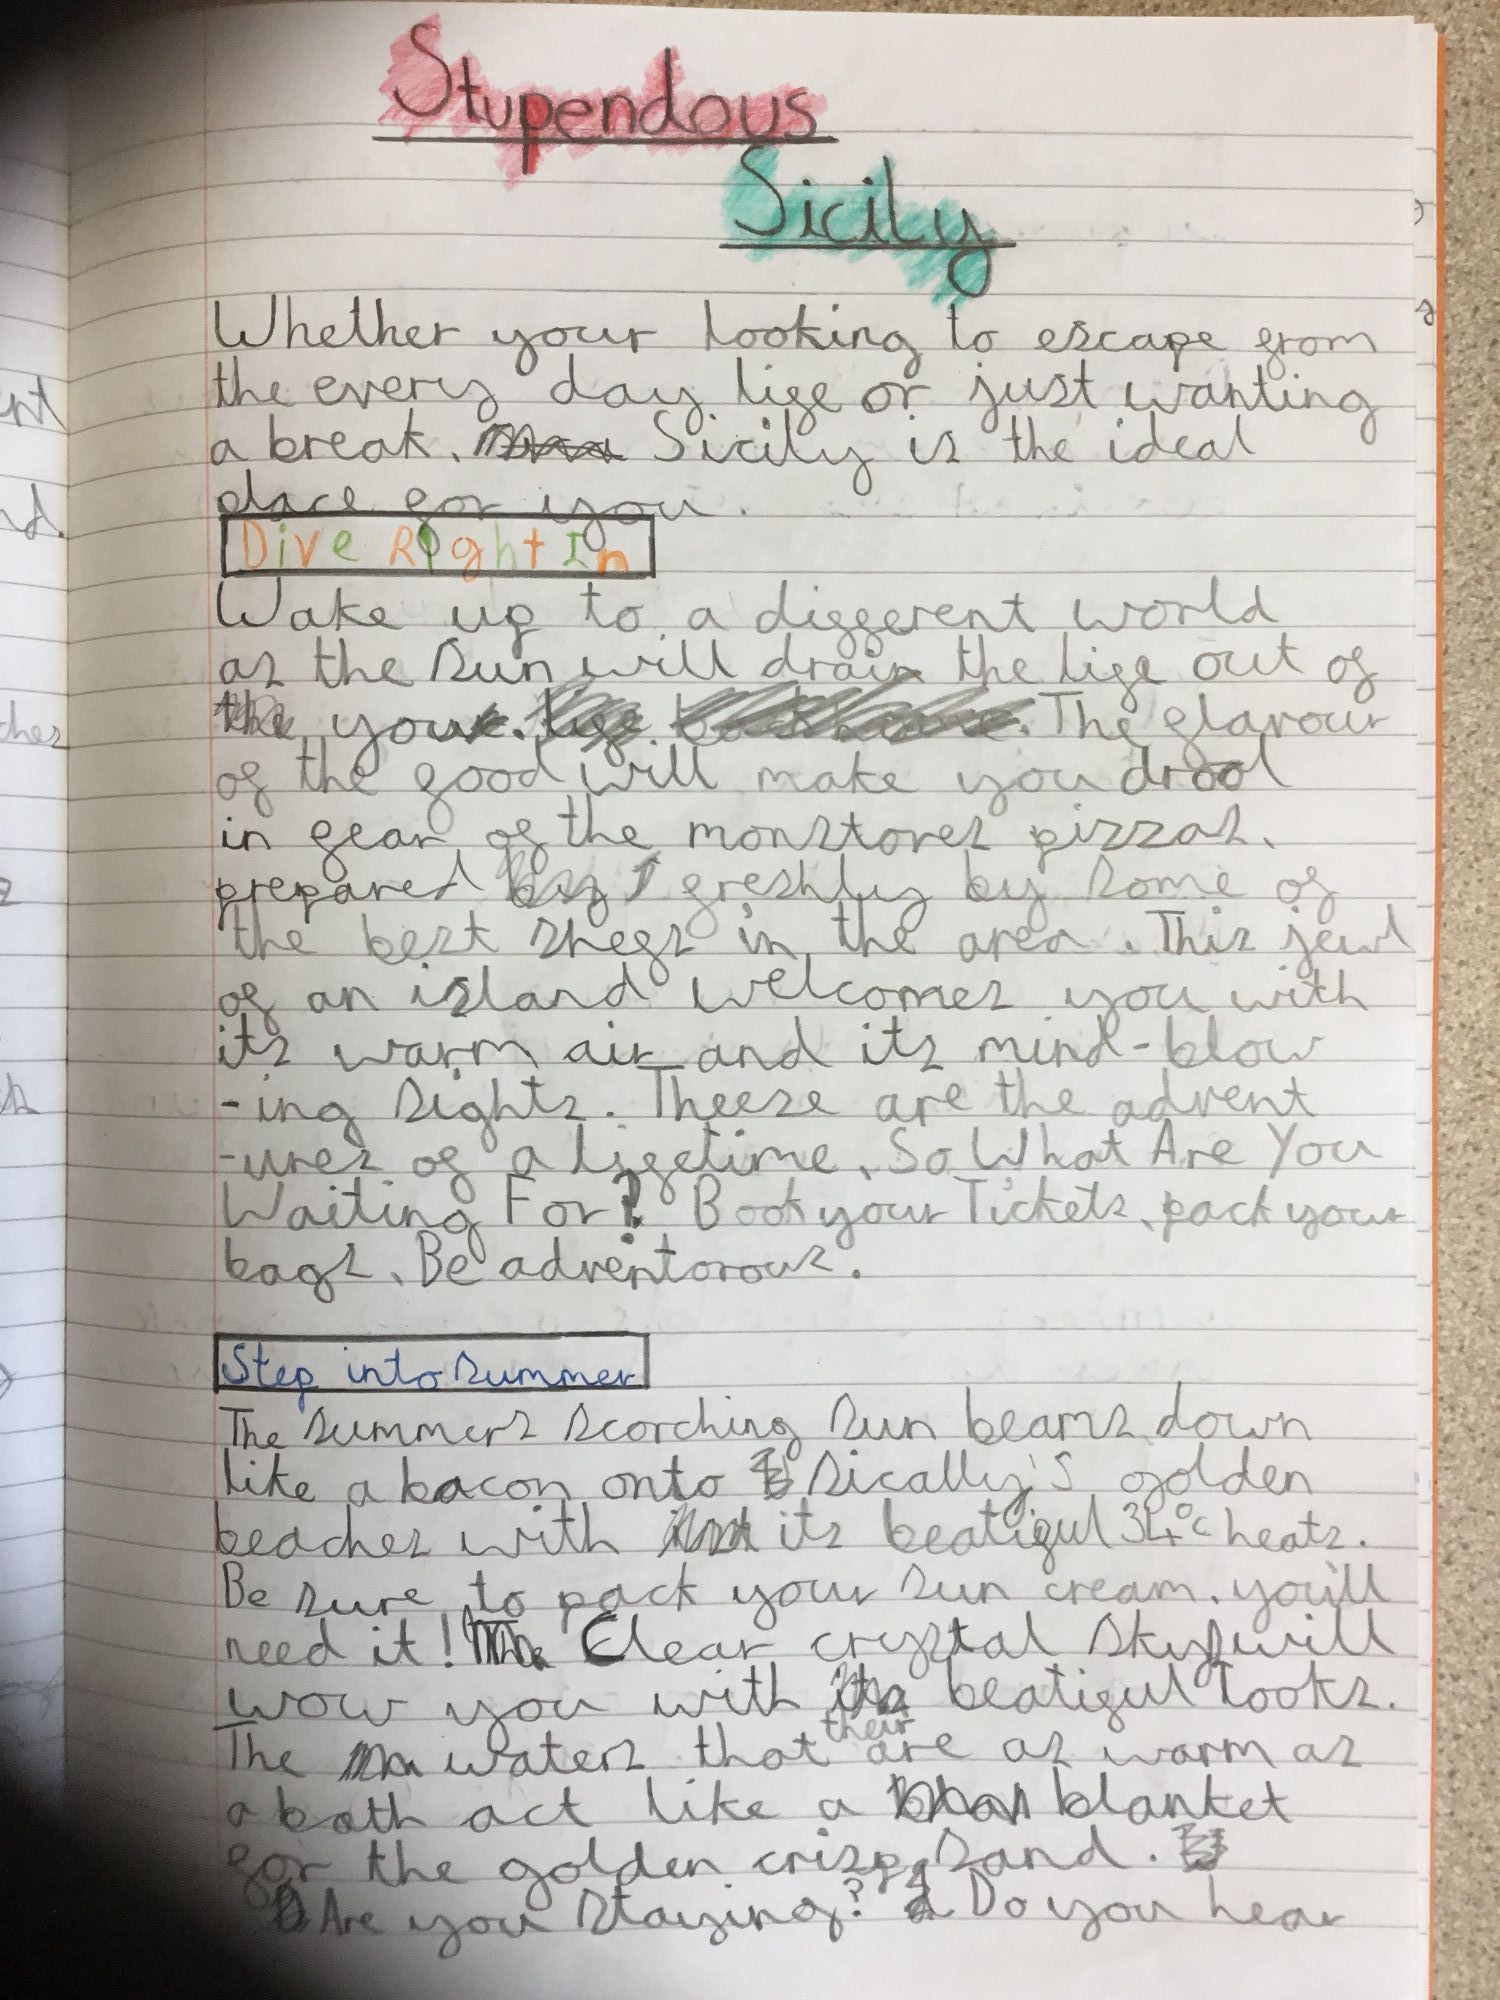 Stupendous
Sicily
Whether your looking to escape from
the every day life or just wanting
a break, Sicily is the ideal
place for you.
Dive Right In
Wake up to a different world
as the sun will drain the life out of
you. The flavour
of the food will make you drool
in fear of the monstores pizzas,
prepared freshly by some of
the best shefs in the area. This jewl
of an island welcomes you with
its warm air and its mind-blow
-ing sights. Theese are the advent
-ures of a lifetime, So What Are You
Waiting For? Book your Tickets, pack your
bags, Be adventorous.
Step into summer
The summers scorching sun beams down
like a bacon onto Sically's golden
beaches with its beatiful 34°c heats.
Be sure to pack your sun cream, you'll
need it! Clear crystal sky will
wow you with beatiful looks.
their
The waters that are as warm as
a bath act like a blanket
for the golden crisp sand.
Are you staying? Do you hear